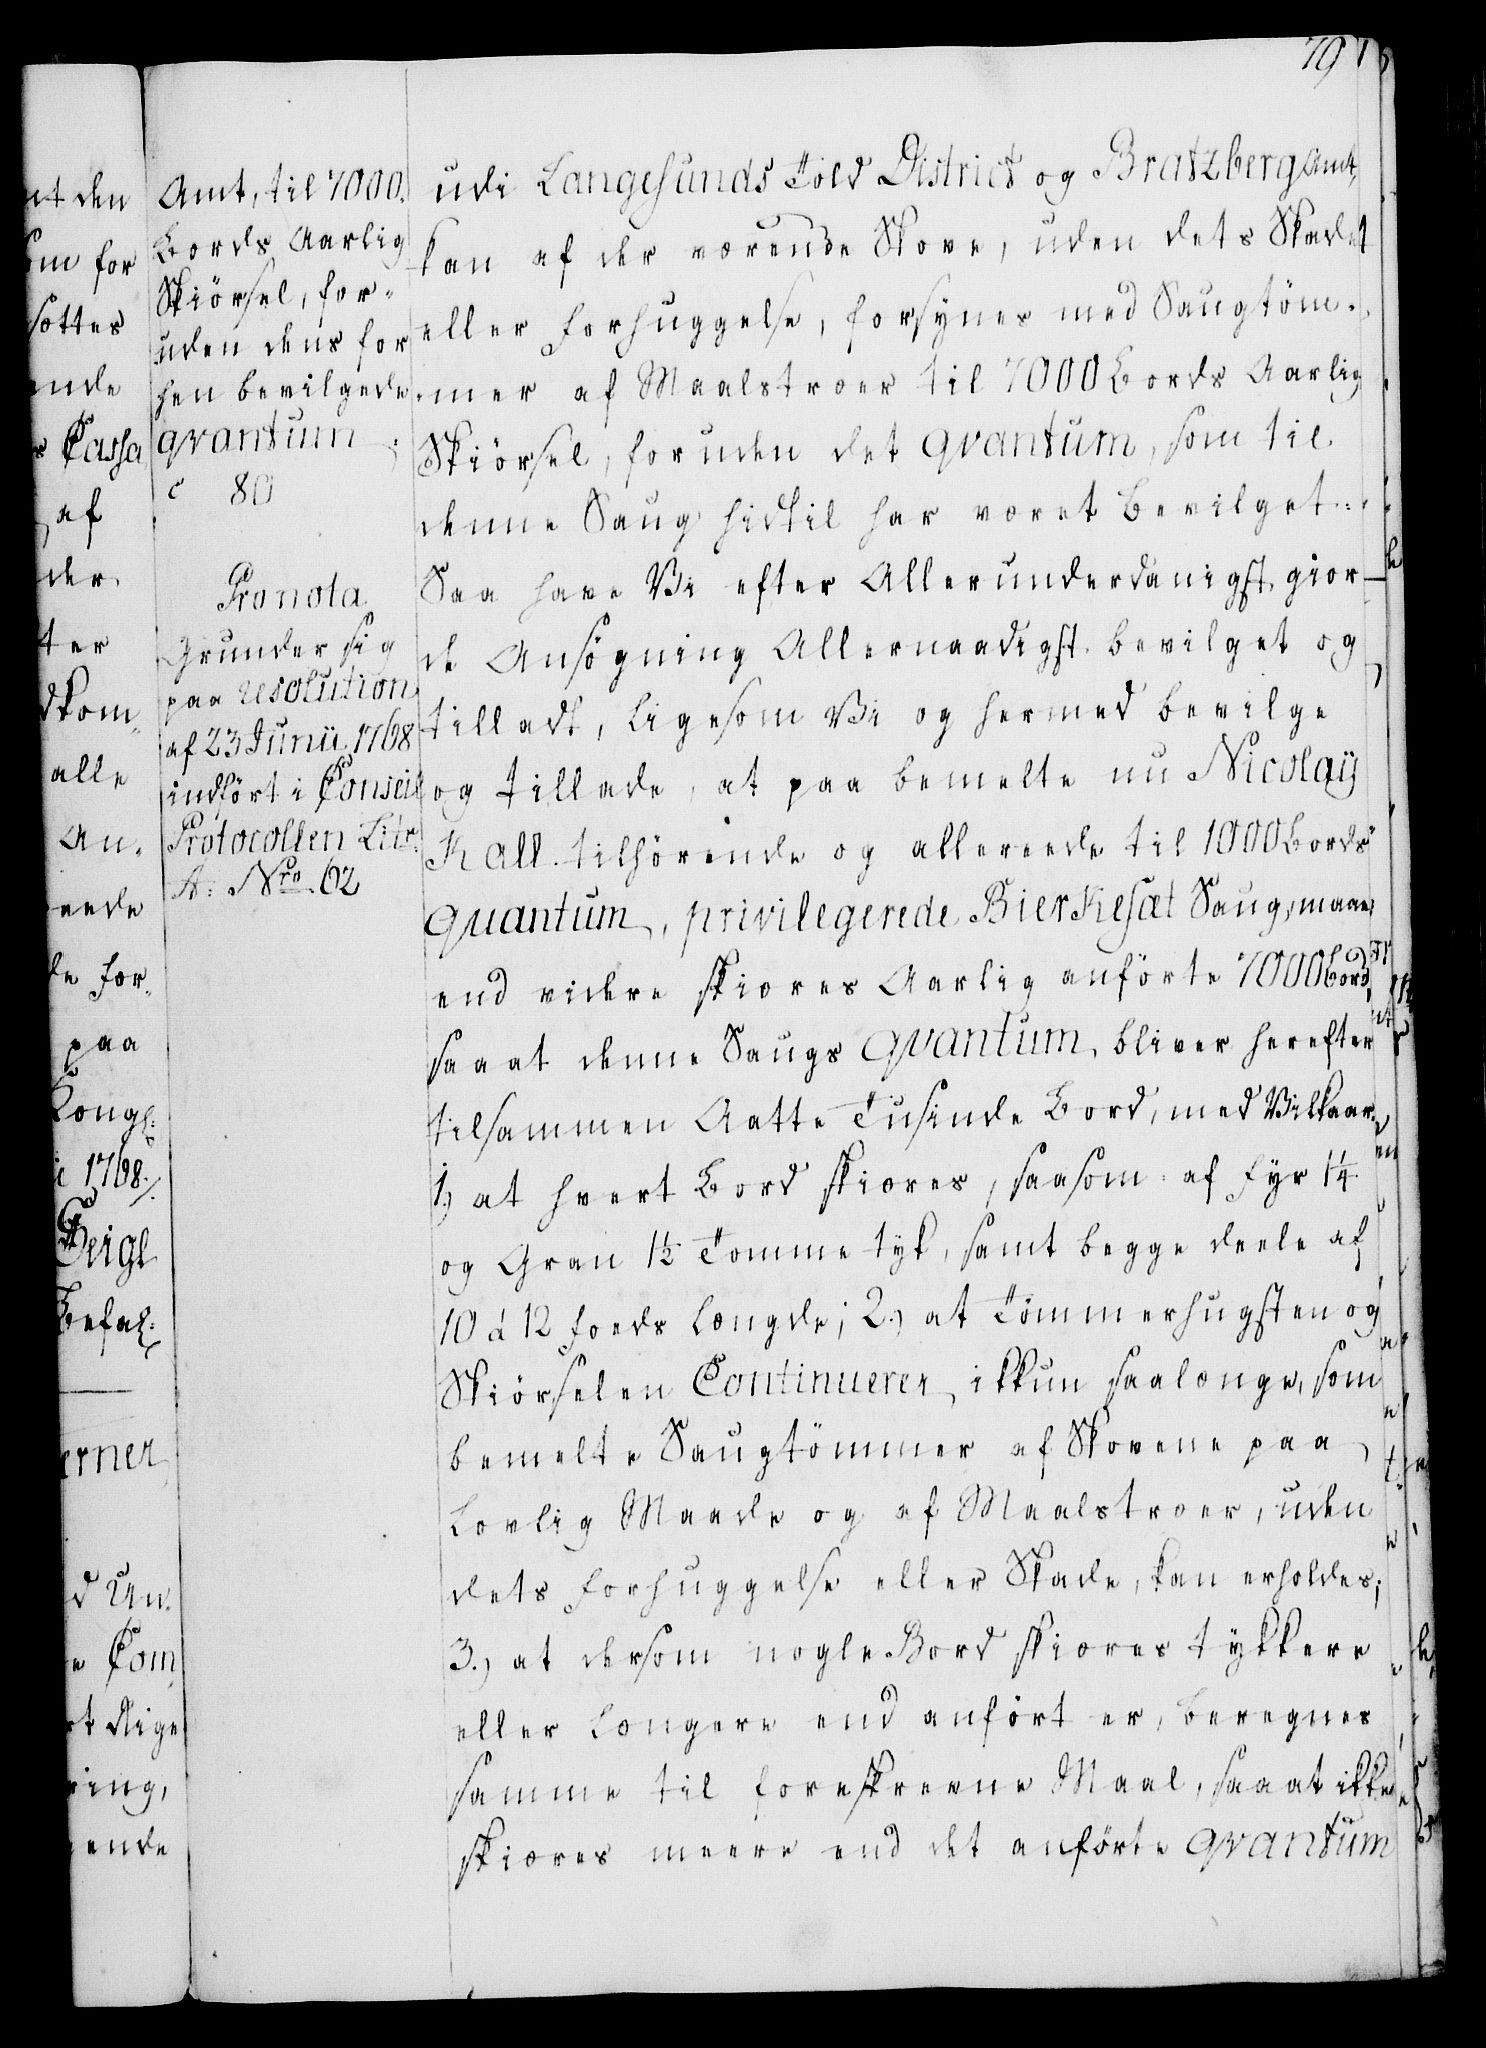 791
Amt, til 7000.
Bords Aarlig
Skiörsel, for-
uden dens for
hen bevilgede
qvantum.
c 80
Pro nota
Grunder sig
paa resolution
af 23 Junii 1768
indfört i Conseil
Protocollen Litr.
A: Nro. 62
udi Langesunds Told District og Bratzberg Amt,
kan af der værende Skove, uden dets Skade
eller Forhuggelse, forsynes med Saugtöm-
mer af Maalstræer til 7000 Bords Aarlig
Skiörsel, foruden det qvantum, som til
denne Saug hidtil har været bevilget:
Saa have Vi efter Allerunderdanigst gior-
de Ansögning Allernaadigst bevilget og
tilladt, ligesom Vi og hermed bevilge
og tillade, at paa bemelte nu Nicolaÿ
Kall tilhörende og allereede til 1000 Bords
quantum, privilegerede Bierkesæt Saug, maae
end videre skiæres Aarlig anförte 7000 bord,
saaat denne Saugs qvantum bliver herefter
tilsammen Aatte Tusinde Bord, med Vilkaar
1.) at hvert Bord skiæres, saasom af Fyr 1¼
og Gran 1½ Tomme tyk, samt begge deele af
10 á 12 foeds Længde; 2.) at Tömmerhugsten og
Skiörselen Continuerer ikkun saalænge, som
bemelte Saugtömmer af Skovene paa
Lovlig Maade og af Maalstræer, uden
dets forhuggelse eller Skade, kan erholdes;
3.) at dersom nogle Bord skiæres tykkere
eller længere end anfört er, beregnes
samme til foreskrevne Maal, saaat ikke
skiæres meere end det anförte qvantum